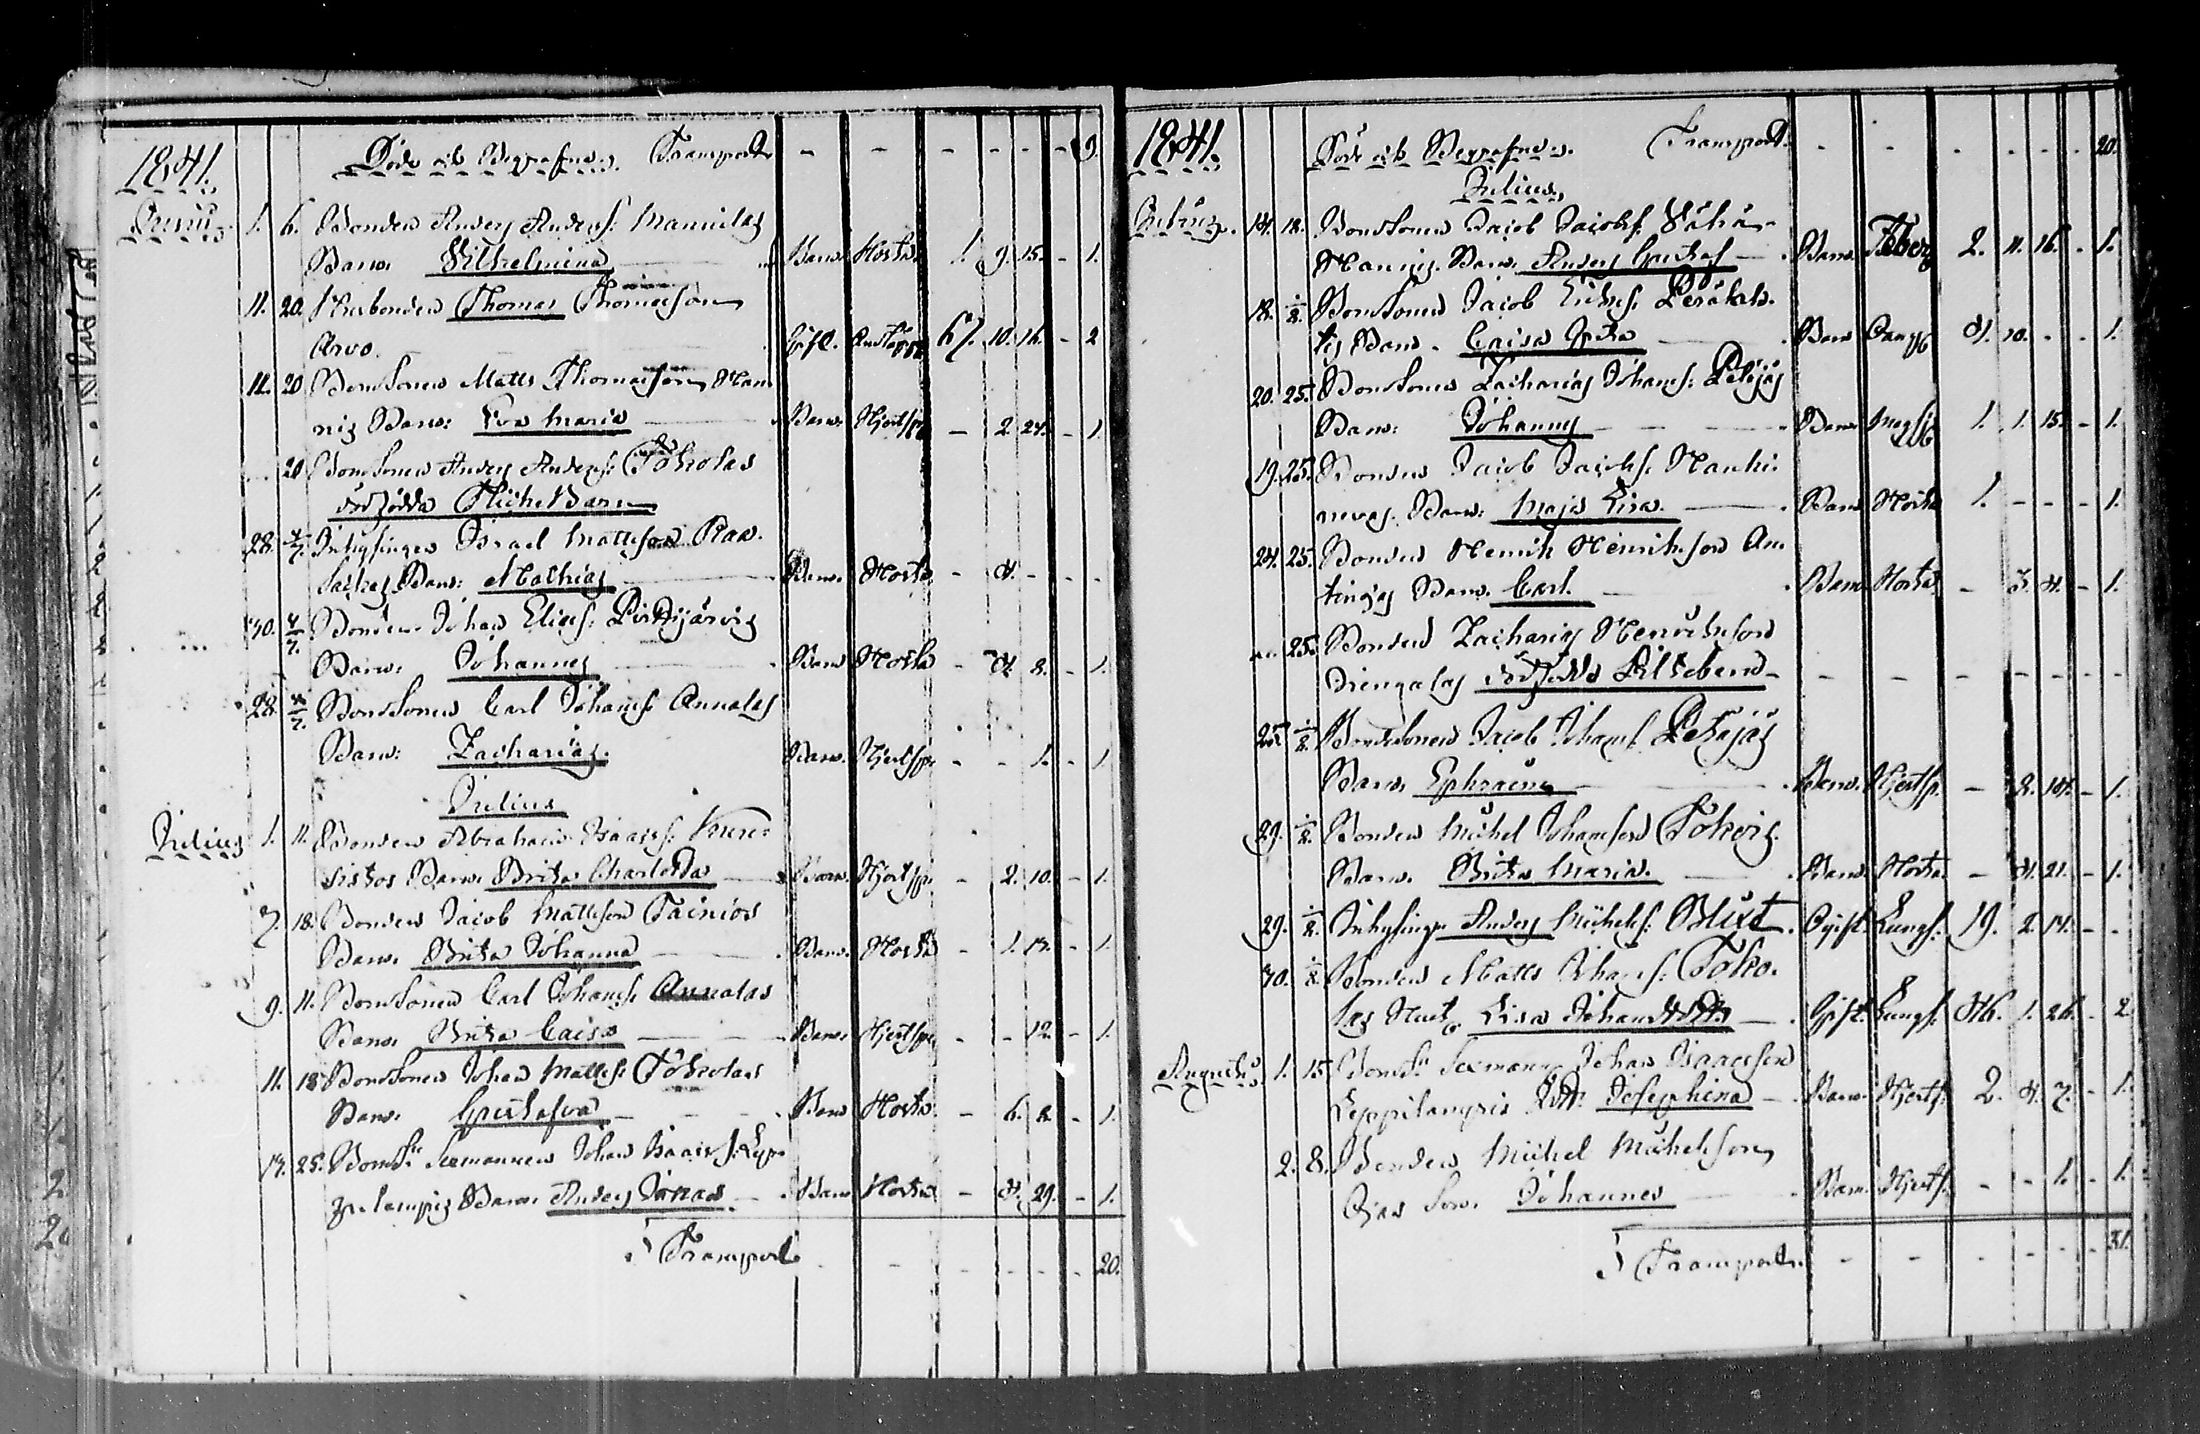 1841. Döde och Begrafne. Transport - - - - - - 9.
Junii 1. 6. Bonden Anders Anders: Mannilas
Barn. Wilhelmina Barn. Hosta 1. 9. 15. - 1.
11. 20. Thomas Thomasson
Arvo. Gift. 67. 10. 16. - 2
11. 20 Bondsonen Matts Thomasson Han
nis Barn: Eva Maria Barn. Hjertspr - 2 24. - 1.
20 Bondsonen Anders Anders: Tökolas
dödfödda Flicke Barn
28. 4/7. Inhysingen Israel Mattsson Raa.
Barn: Mathias Barn. Hosta - 4. - - -
30. 4/7. Bonden Johan Elias: Pirttijärvis
Barn: Johannes Barn Hosta - 4. 8. - 1.
28. 4/7. Bondsonen Carl Johans: Annalas
Barn: Zacharias. Barn. Hjertspr - - 1. - 1
Julius
Julius 1. 11. Bonden Abraham Isaacs:
Barn. Brita Charlotta Barn. Hjertspr. - 2. 10. - 1.
7. 18. Bonden Jacob Mattsson Tainios
Barn. Brita Johanna Barn. Hosta - 1. 17. - 1.
9. 11. Bondsonen Carl Johans: Annalas
Barn. Brita Caisa Barn. Hjertspr - - 12. - 1.
11. 18 Bondsonen Johan Matts: Tökolas
Barn. Gustafva Barn Hosta - 6. 2. - 1.
17. 25. Bonds: Sexmannen Johan Isaacs: Lep
pilampis Barn. Anders Jonas Barn Hosta - 4. 29. - 1.
Transport - - - - - 20.
1841. Döde och Begrafne. Transport. - - - - - - 20.
Julius.
Julius. 14. 18. Bondsonen Jacob Jacobs: Vähä-
Hannis. Barn. Anders Gustaf Barn. Feber 2. 11. 16. - 1.
18. 1/8. Bondsonen Jacob Erics:
Barn. Caisa Greta Barn 4. 10. - - 1.
20. 25. Bondsonen Zacharias Johans: Petäjäs
Barn: Johannes Barn 1. 1. 15. - 1.
19. 25. Bonden Jacob Jacobs: Hauki
nevas. Barn: Maja Lisa. Barn Hosta 1. - - - 1.
24. 25. Bonden Henrik Henriksson An
Barn. Carl. Barn Hosta - 3. 4. - 1.
25. Bonden Zacharias Henriksson
Drengalas dödfödda Piltebarn - - - - - - -
25. 1/8. Bondsonen Jacob Johans: Petäjäs
Barn. Ephraim Barn. Hjertsp. - 2. 14. - 1.
29. 1/8. Bonden Michel Johansson Tokois.
Barn. Brita Maria. Barn. Hosta - 4. 21. - 1.
29. 1/8. Inhysingen Anders Michels: Blixt. Ogift. Lungs: 19. 2. 14. - -
30. 1/8. Bonden Matts Johans: Toko.
las Hustr. Lisa Johansdotter Gift. Lungs: 46. 1. 26. - 2.
Augustus. 1. 15. Bonds: Sexmann: Johan Isaacsson
Leppilampis Dott: Josephina Barn. Hjerts: 2. 4. 7. - 1.
2. 8. Bonden Michel Michelsson
Ojas Son. Johannes Barn. Hjerts: - - 1. - 1.
Transport. - - - - - - 31.